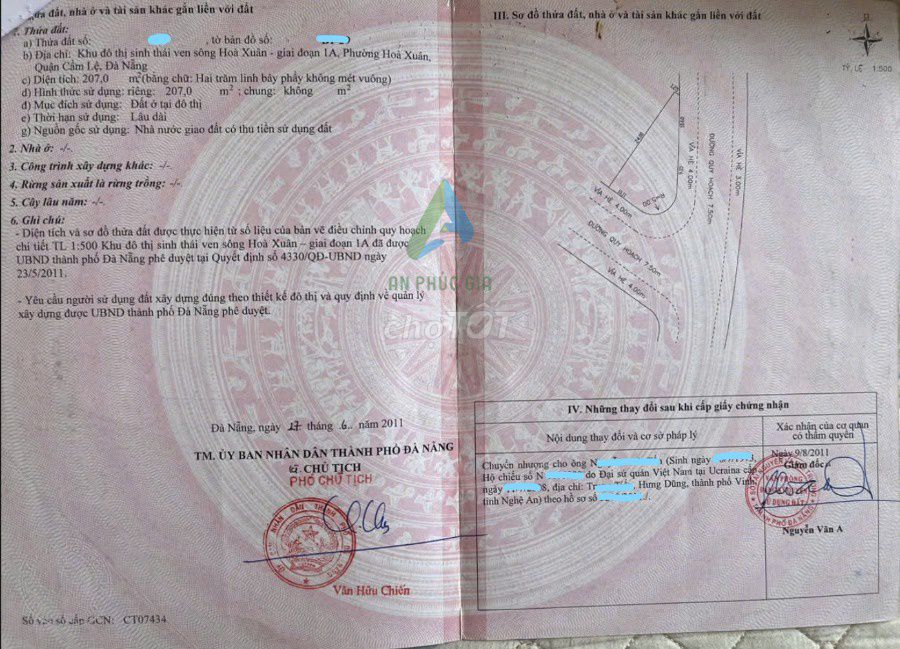 thửa đất, nhà ở và tài sản khác gắn liền với đất
1. Thửa đất:
a) Thửa đất số: , tờ bản đồ số:
b) Địa chỉ: Khu đô thị sinh thái ven sông Hoà Xuân - giai đoạn 1A, Phường Hoà Xuân,
Quận Cẩm Lệ, Đà Nẵng
c) Diện tích: 207,0 m² (bằng chữ: Hai trăm linh bảy phẩy không mét vuông)
d) Hình thức sử dụng: riêng: 207,0 m² ; chung: không m²
đ) Mục đích sử dụng: Đất ở tại đô thị
e) Thời hạn sử dụng: Lâu dài
g) Nguồn gốc sử dụng: Nhà nước giao đất có thu tiền sử dụng đất
2. Nhà ở: -/-
3. Công trình xây dựng khác: -/-
4. Rừng sản xuất là rừng trồng: -/-
5. Cây lâu năm: -/-
6. Ghi chú:
- Diện tích và sơ đồ thửa đất được thực hiện từ số liệu của bản vẽ điều chỉnh quy hoạch
chi tiết TL 1:500 Khu đô thị sinh thái ven sông Hoà Xuân – giai đoạn 1A đã được
UBND thành phố Đà Nẵng phê duyệt tại Quyết định số 4330/QĐ-UBND ngày
23/5/2011.
- Yêu cầu người sử dụng đất xây dựng đúng theo thiết kế đô thị và quy định về quản lý
xây dựng được UBND thành phố Đà Nẵng phê duyệt.
Đà Nẵng, ngày 17 tháng 6 năm 2011
TM. ỦY BAN NHÂN DÂN THÀNH PHỐ ĐÀ NẴNG
CHỦ TỊCH
PHÓ CHỦ TỊCH
Văn Hữu Chiến
Số vào sổ cấp GCN: CT07434
III. Sơ đồ thửa đất, nhà ở và tài sản khác gắn liền với đất
TỶ LỆ 1:500
VỈA HÈ 4.00m
ĐƯỜNG QUY HOẠCH 7.50m
VỈA HÈ 3.00m
VỈA HÈ 4.00m
ĐƯỜNG QUY HOẠCH 7.50m
VỈA HÈ 4.00m
AN PHÚC GIA
chợTỐT
IV. Những thay đổi sau khi cấp giấy chứng nhận
Nội dung thay đổi và cơ sở pháp lý
Xác nhận của cơ quan
có thẩm quyền
Chuyển nhượng cho ông N (Sinh ngày
Hộ chiếu số N do Đại sứ quán Việt Nam tại Ucraina cấp
ngày 08, địa chỉ: Tr , Hưng Dũng, thành phố Vinh,
tỉnh Nghệ An) theo hồ sơ số
Ngày 9/8/2011
Giám đốc
Nguyễn Văn A